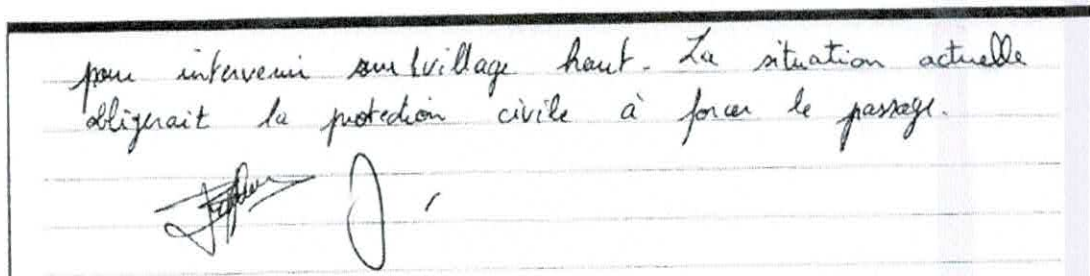 pour intervenir sur village haut. La situation actuelle
obligerait la protection civile à forcer le passage.